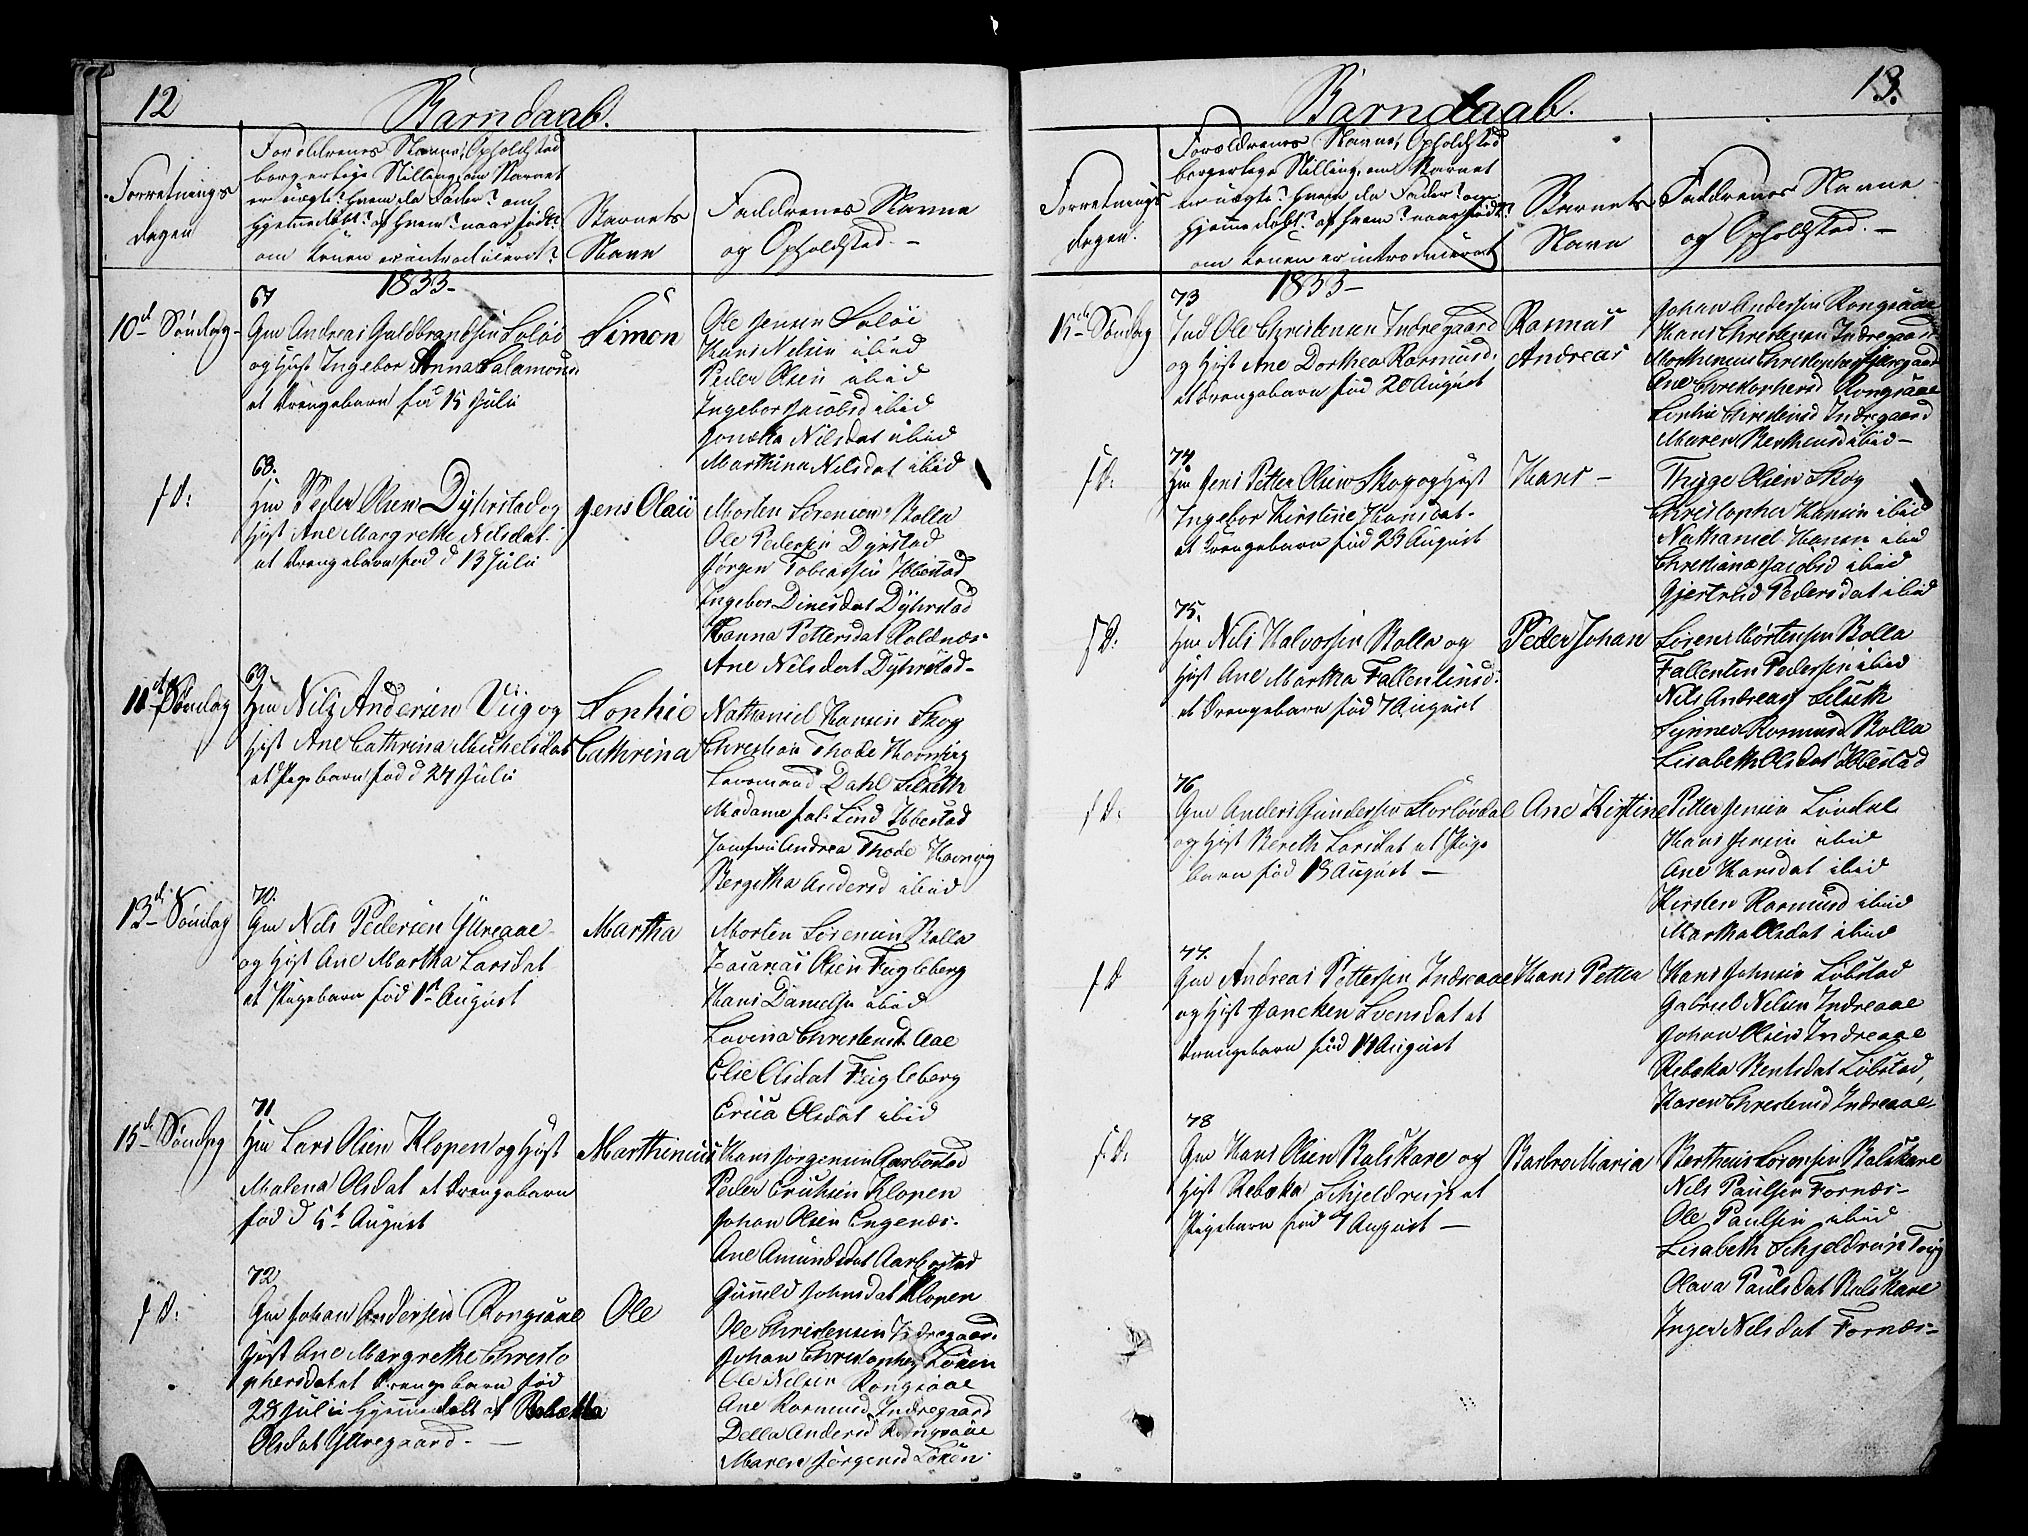 12
Barndaab.
Forretnings
dagen
Forældrenes Navne, Opholdsted
borgerlige Stilling, om Barnet
er uægte? hvem da Fader? om
hjemmedøbt? af hvem? naar født?
om Konen er introduceret?
Barnets
Navn
Faddrenes Navne
og Opholdsted. -
1833-
67
10de Søndag-
Gm Andreas Guldbrandsen Soløi
og Hust Ingebor Anna Salamonsd
et Drengebarn fød 15 Julii
Simon
Ole Jensen Soløi
Hans Nelsen ibid
Peder Olsen ibid
Ingebor Jacobsd ibid
Jonetta Nilsdat ibid
Marthina Nilsdat ibid
68.
f D:
Hm Peder Olsen Dyhrstad og
Hust Ane Margrethe Nilsdat.
et Drengebarn fød d 13 Julii
Jens Olaii
Morten Sørensen Rolla
Ole Pedersen Dyrstad
Jørgen Tobiassen Ibbestad
Ingebor Dinesdat Dyhrstad
Hanna Pettersdat Roldnæs-
Ane Nilsdat Dyhrstad-
69
11te Søndag
Hm Nils Andersen Viig og
Hust Ane Cathrina Michelsdat
et Pigebarn fød d 24 Julii
Sophie
Cathrina
Nathaniel Hansen Skog
Christian Thode Havnvig
Lensmand Dahl Selseth
Madame sal: Lind Ibbestad
Jomfru Andrea Thode Havnvig
Bergitha Andersd ibid
70.
13de Søndag
Gm Nils Pedersen Yttreaae
og Hust Ane Martha Larsdat
et Pigebarn fød 1st August
Martha
Morten Sørensen Rolla
Zacarias Olsen Fugleberg
Hans Danielsen ibid
Lovina Christensd Aae
Elie Olsdat Fugleberg
Erica Olsdat ibid
71
15de Søndag
Hm Lars Olsen Klopen og Hust
Malena Olsdat et Drengebarn
fød d 5t August
Marthinius
Hans Jørgensen Aarbostad
Peder Erichsen Klopen
Johan Olsen Engenæs-
Ane Amundsdat Aarbostad
Gunneld Johnsdat Klopen
72
f D:
Gm Johan Andersen Rongsaae
Hust Ane Margrethe Christo
phersdat et Drengebarn fød
28 Julii hjemmedøbt af Rebækka
Olsdat Yttregaard. -
Ole
Ole Christensen Indregaard.
Johan Christophers Løken
Ole Nelsen Rongsaae
Ane Rasmusd Indregaard
Della Andersd Rongsaae
Maren Jørgensd Løken
13.
Barndaab.
Forretnings
dagen.
Forældrenes Navne, Opholdsted
borgerlige Stilling, om Barnet
er uægte? hvem da Fader? om
hjemmedøbt? af hvem? naar født?
om Konen er introduceret
Barnets
Navn
Faddrenes Navne
og Opholdsted. -
1833-
73
15de Søndag
Ind Ole Christensen Indregaard
og Hust Ane Dorthea Rasmusd.
et Drengebarn fød 20 August
Rasmus
Andreas
Johan Andersen Rongsaae
Hans Christensen Indregaard
Morthinus Christophersen
Ane Christophersd Rongsaae
Sophie Christensd Indregaard
Maren Berthensd ibid-
74
f D:
Hm Jens Petter Olsen Skog og Hust
Ingebor Kirstine Hansdat.
et Drengebarn fød 23 August
Hans -
Thyge Olsen Skog
Christopher Hansen ibid
Nathaniel Hansen ibid
Christiana Jacobsd ibid
Gjertrud Pedersdat ibid
75.
f D:
Hm Nils Halvorsen Rolla og
Hust Ane Martha Fallentinsd.
et Drengebarn fød 7 August
Peder Johan
Sørens Mortensen Rolla
Fallentin Pedersen ibid
Nils Andreas Selseth
Synnev Rasmusd Rolla
Lisabeth Olsdat Ibbestad
76
f D:
Gm Anders Gundersen Storløvdal
og Hust Bereth Larsdat et Pige
barn fød 13 August -
Ane Kirstine
Petter Jensen Løvdal
Hans Jensen ibid
Ane Hansdat ibid
Kirsten Rasmusd ibid
Martha Olsdat ibid
77.
f D
Gm Andreas Pettersen Indreaae
og Hust Jancken Svensdat et
Drengebarn fød 11 August
Hans Petter
Hans Johnsen Løbstad
Gabriel Nelsen Indreaae
Johan Olsen Indreaae
Rebekka Bentsdat Løbstad,
Karen Christensd Indreaae.
78
f. D.
Gm Hans Olsen Balskare og
Hust Rebæka Schjeldrup et
Pigebarn fød 7 August -
Barbro Maria
Bertheus Sørensen Balskare
Nils Paulsen Fornæs-
Ole Paulsen ibid
Lisabeth Schjeldrup
Olava Paulsdat Balskare
Inger Nilsdat Fornæs-